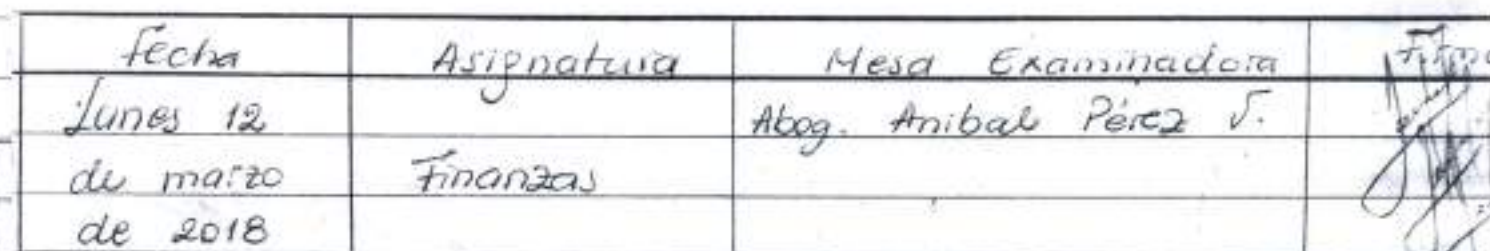 Fecha Asignatura Mesa Examinadora Firma
Lunes 12 Abog. Anibal Pérez V.
de marzo Finanzas
de 2018